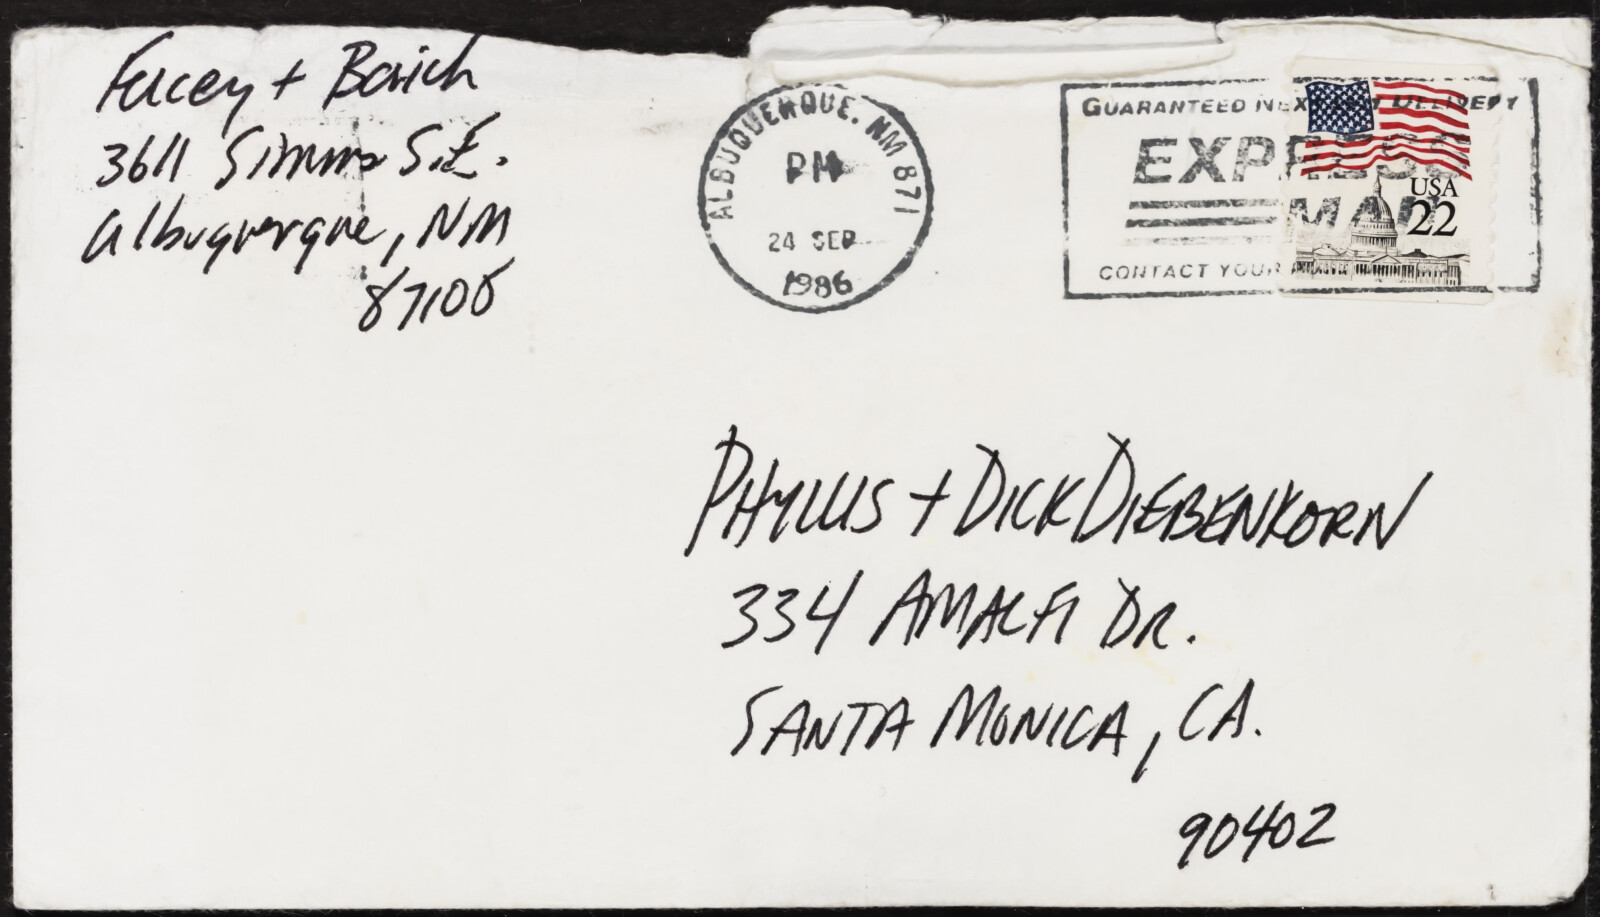 Facey + Barich
3611 Simms S.E.
Albuquerque, NM
87108
ALBUQUERQUE, NM 871
PM
24 SEP
1986
GUARANTEED NEXT DAY DELIVERY
EXPRESS
MAIL
CONTACT YOUR
USA
22
PHYLLIS + DICK DIEBENKORN
334 AMALFI DR.
SANTA MONICA, CA.
90402